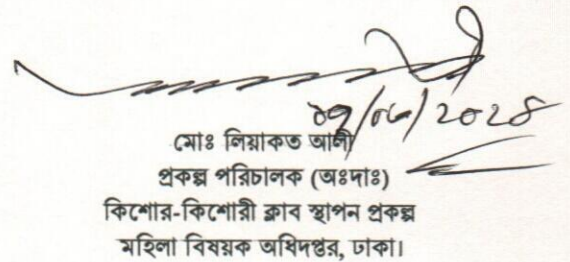 মোঃ লিয়াকত আলী
প্রকল্প পরিচালক (অঃদাঃ)
কিশোর-কিশোরী ক্লাব স্থাপন প্রকল্প
মহিলা বিষয়ক অধিদপ্তর, ঢাকা।